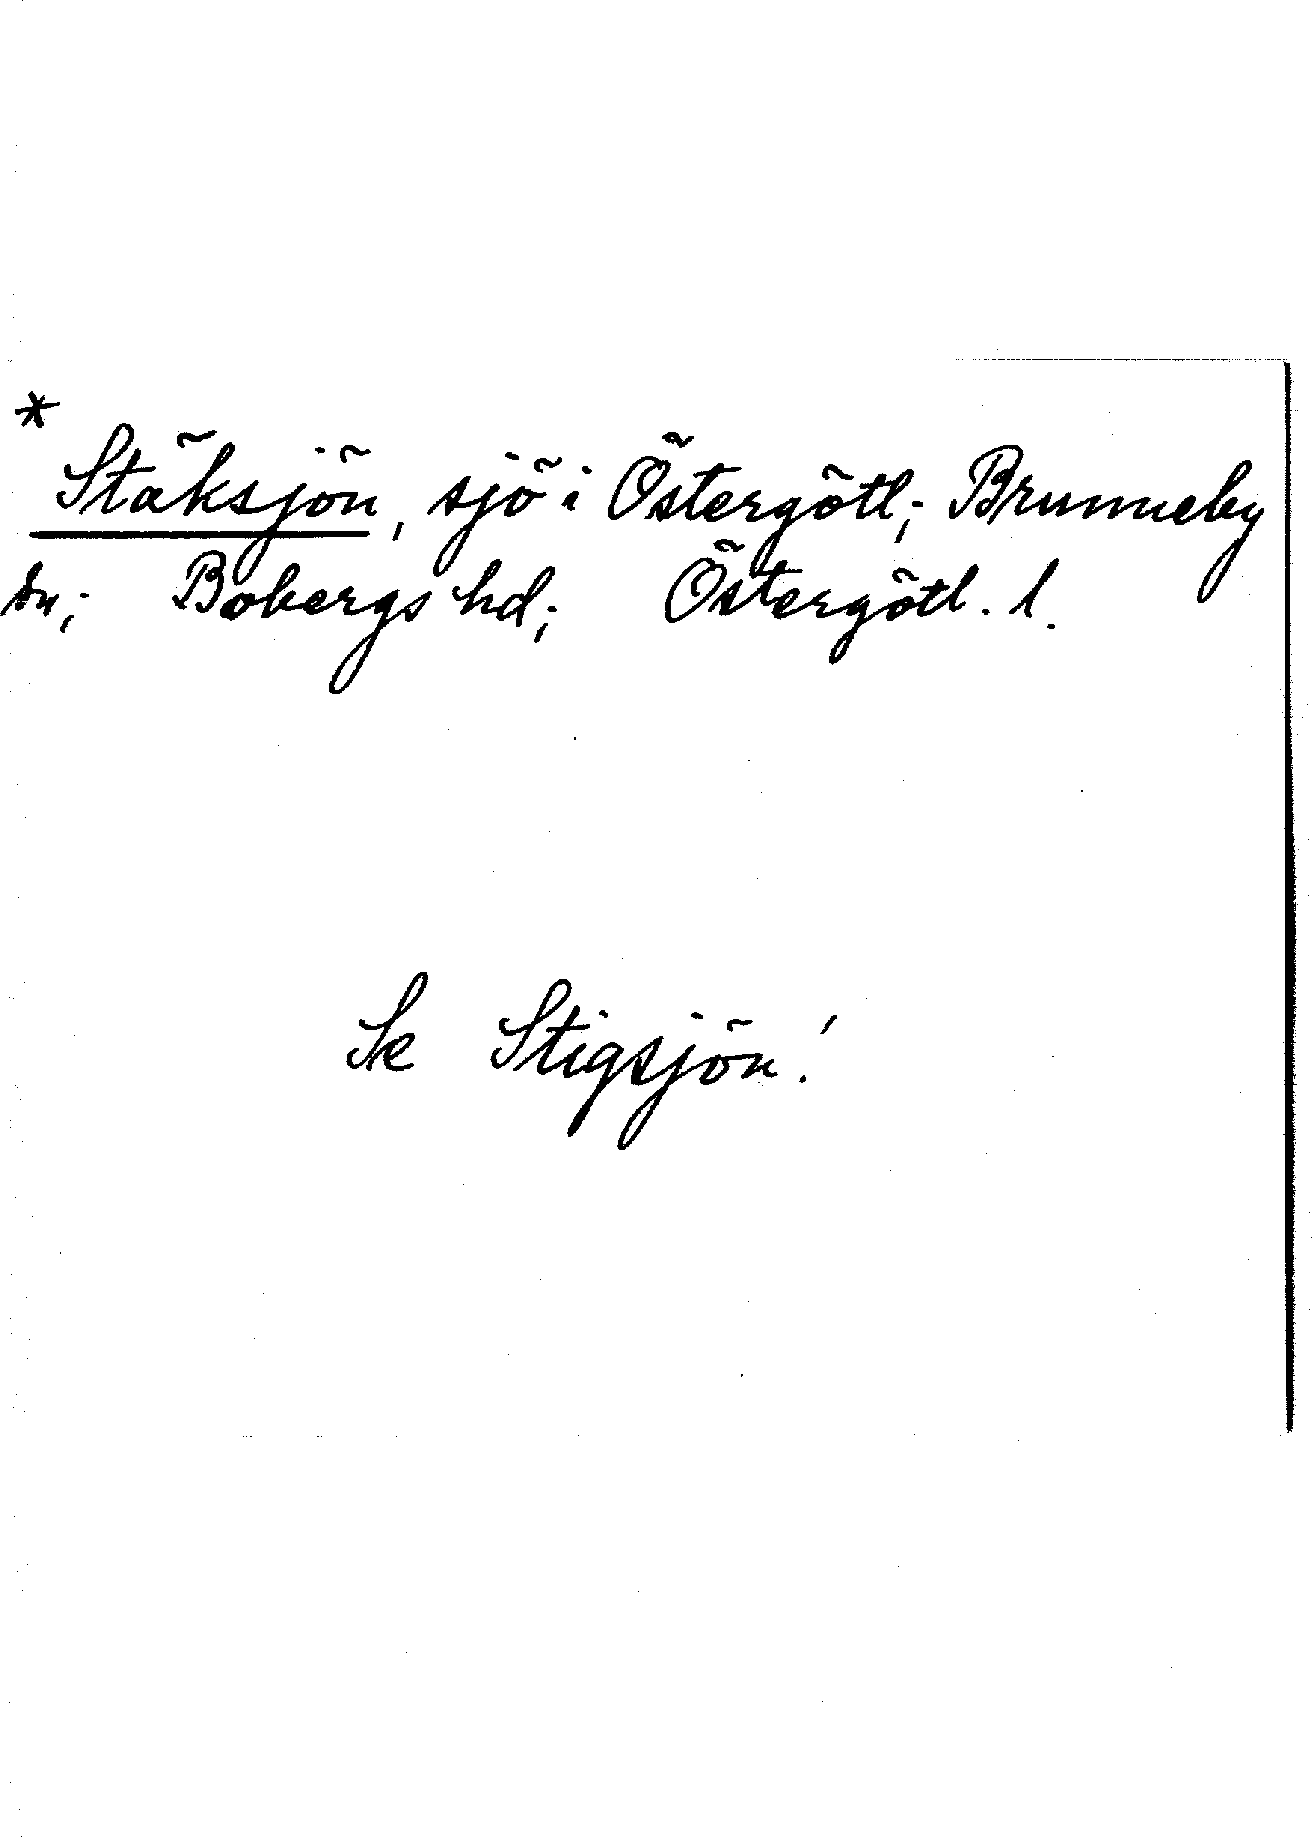 *
Stäksjön, sjö i Östergötl.; Brunneby
sn; Bobergs hd; Östergötl. l.
Se Stigsjön!